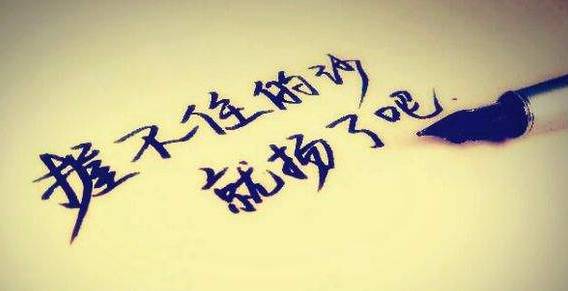 握不住的沙
就扬了吧